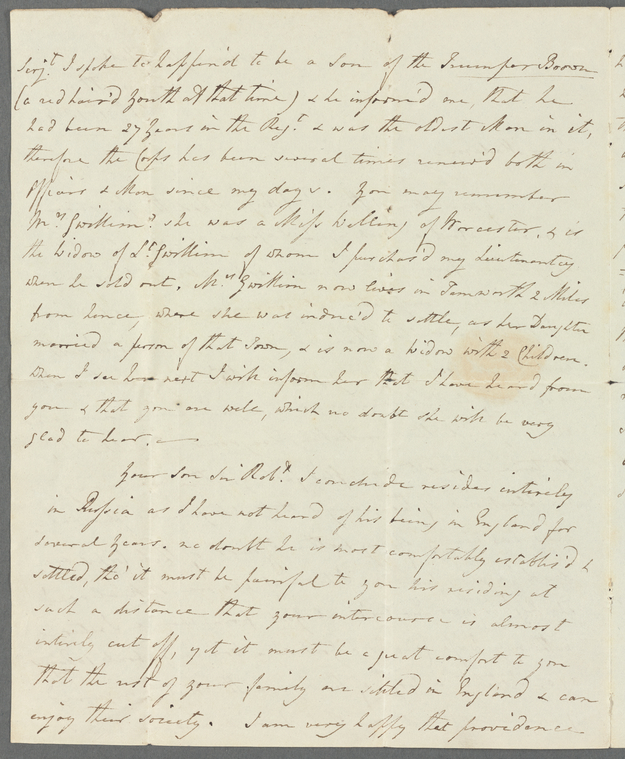 Serjt. I spoke to happen'd to be a Son of the Trumper Brown
(a red hair'd youth at that time) & he inform'd me, that he
had been 27 Years in the Regt. & was the oldest Man in it,
therefore the Corps has been several times renew'd both in
Officers & Men since my days. You may remember
Mrs. Gwillim? she was a Miss Welling of Worcester, & is
the Widow of Lt. Gwillim of whom I purchas'd my Lieutenantcy
when he sold out. Mrs. Gwillim now lives in Tamworth 2 Miles
from hence, where she was induc'd to settle, as her Daughter
married a person of that Town, & is now a Widow with 2 Children.
When I see her next I wish inform her that I have heard from
you & that you are well, which no doubt she will be very
glad to hear. —
Your Son Sir Robt. I conclude resides entirely
in Russia as I have not heard of his being in England for
several Years. no doubt he is most comfortably establis'd &
settled, tho' it must be painful to you his residing at
such a distance that your intercourse is almost
intirely cut off, yet it must be a great comfort to you
that the rest of your family are settled in England & can
enjoy their society. I am very happy that providence